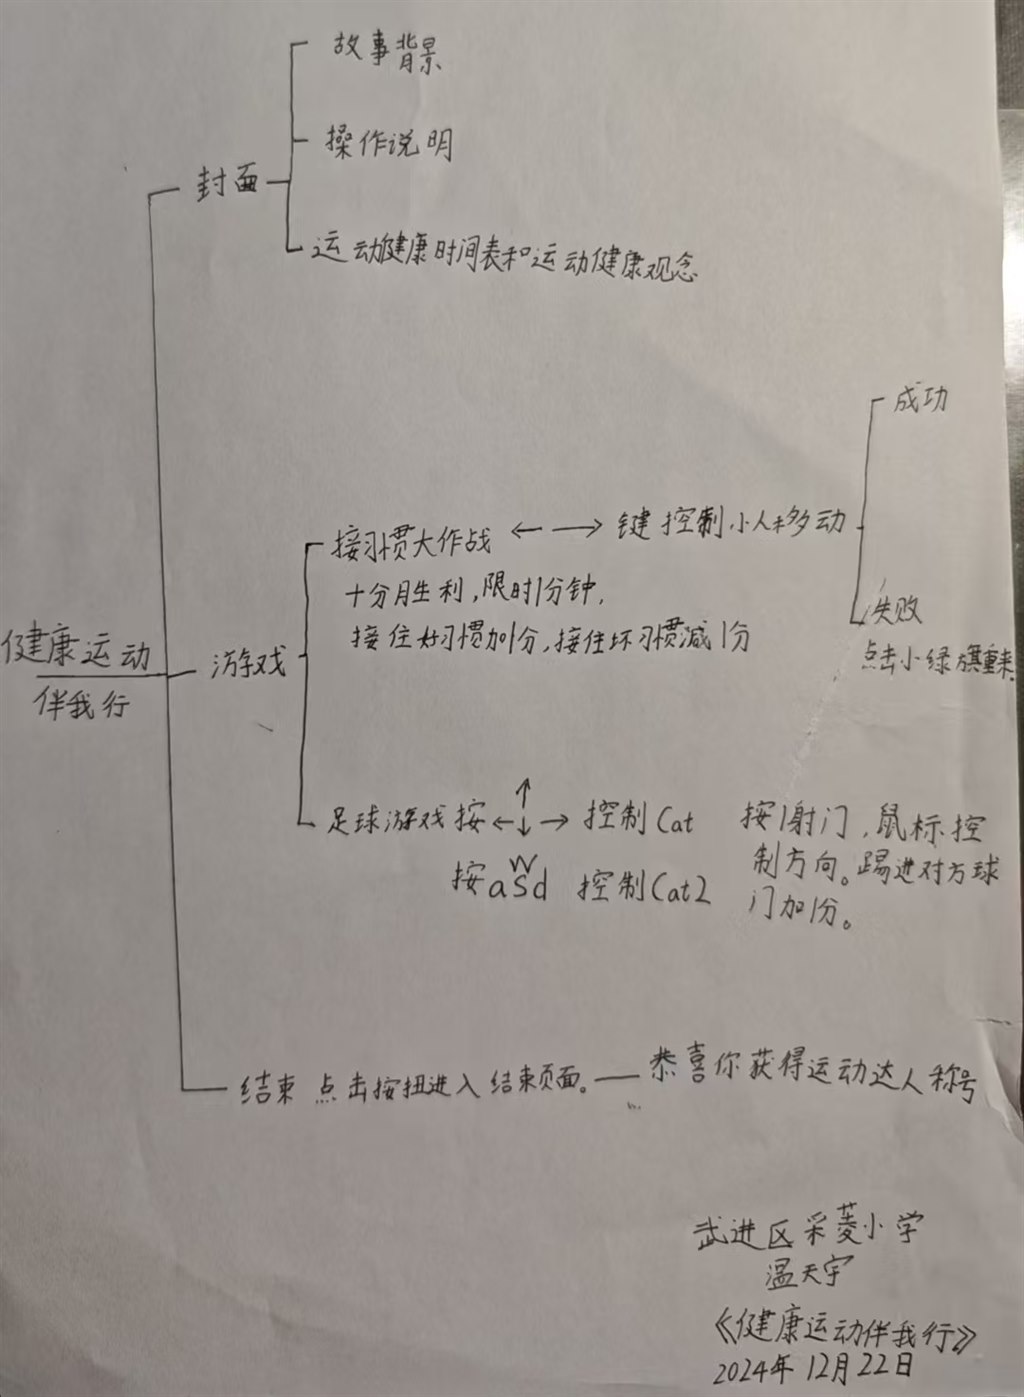 故事背景
操作说明
封面
运动健康时间表和运动健康观念
成功
接习惯大作战 ← → 键控制小人移动
十分胜利,限时1分钟,
失败
接住好习惯加1分,接住坏习惯减1分
点击小绿旗重来。
健康运动
伴我行
游戏
↑
足球游戏 按←↓→ 控制Cat 按1射门,鼠标控
w
按asd 控制Cat2 制方向。踢进对方球
门加1分。
结束 点击按扭进入结束页面。— 恭喜你获得运动达人称号
武进区采菱小学
温天宇
《健康运动伴我行》
2024年12月22日